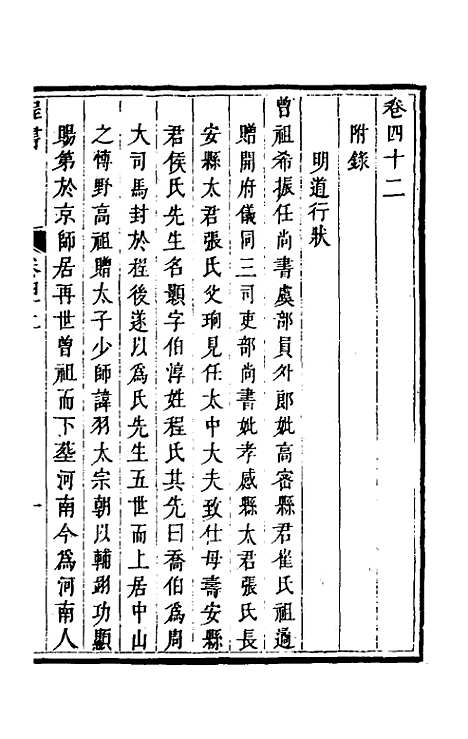 卷四十二
附錄
明道行狀
曾祖希振任尚書虞部員外郎妣高密縣君崔氏祖遹
贈開府儀同三司吏部尚書妣孝感縣太君張氏長
安縣太君張氏父珦見任太中大夫致仕母壽安縣
君侯氏先生名顥字伯淳姓程氏其先曰喬伯爲周
大司馬封於程後遂以爲氏先生五世而上居中山
之博野高祖贈太子少師諱羽太宗朝以輔翊功顯
賜第於京師居再世曾祖而下塟河南今爲河南人
程書
卷四十二
一